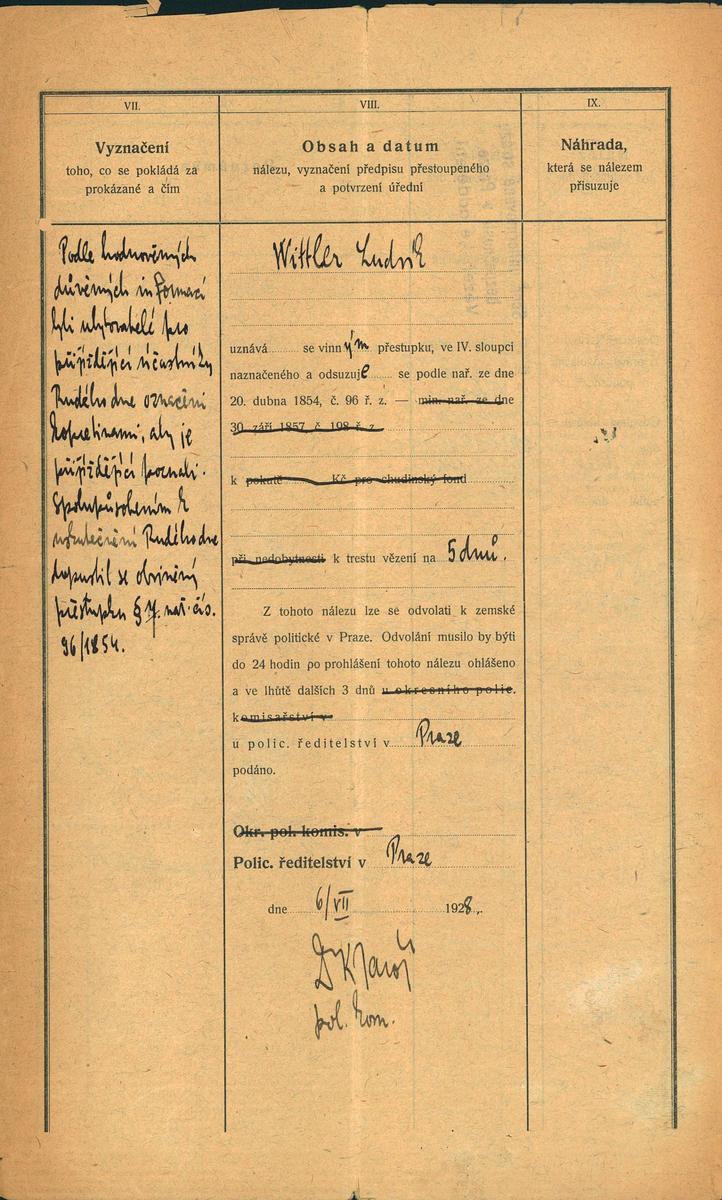 VII.
Vyznačení
toho, co se pokládá za
prokázané a čím
Podle hodnověrných
důvěrných informací
byli ubytovatelé pro
přijíždějící účastníky
Rudého dne označeni
kopretinami, aby je
přijíždějící poznali.
Spolupůsobením k
uskutečnění Rudého dne
dopustil se obviněný
přestupku § 7. nař. čís.
96/1854.
VIII.
Obsah a datum
nálezu, vyznačení předpisu přestoupeného
a potvrzení úřední
Wittler Ludvík
uznává se vinným přestupku, ve IV. sloupci
naznačeného a odsuzuje se podle nař. ze dne
20. dubna 1854, č. 96 ř. z. — min. nař. ze dne
30 září 1857, č. 198 ř. z.
k pokutě Kč pro chudinský fond
při nedobytnosti k trestu vězení na 5 dnů.
Z tohoto nálezu lze se odvolati k zemské
správě politické v Praze. Odvolání musilo by býti
do 24 hodin po prohlášení tohoto nálezu ohlášeno
a ve lhůtě dalších 3 dnů u okresního polic.
komisařství v
u polic. ředitelství v Praze
podáno.
Okr. pol. komis. v
Polic. ředitelství v Praze
dne 6/VII 1928.
pol. kom.
IX.
Náhrada,
která se nálezem
přisuzuje